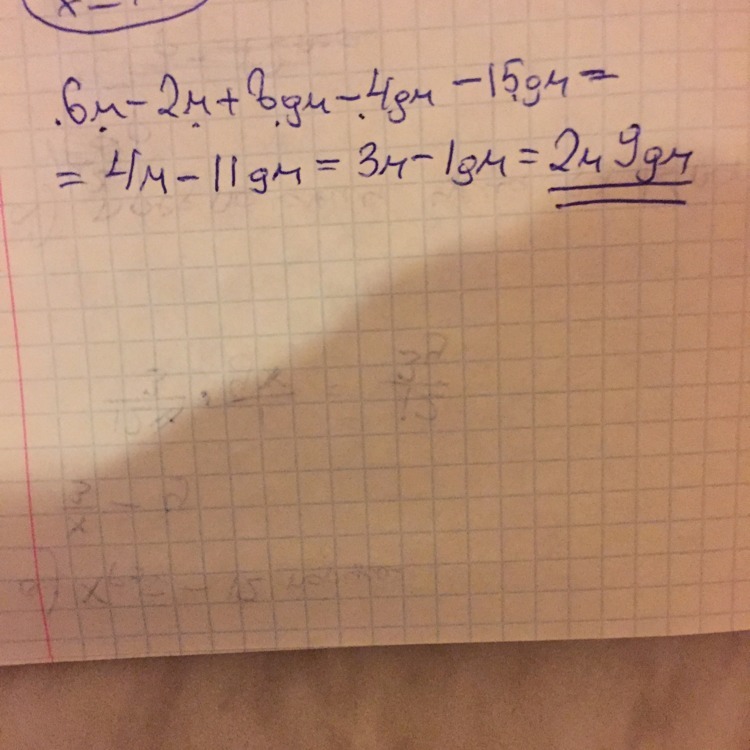 6м - 2м + 8дм - 4дм - 15дм =
= 4м - 11дм = 3м - 1дм = 2м 9дм